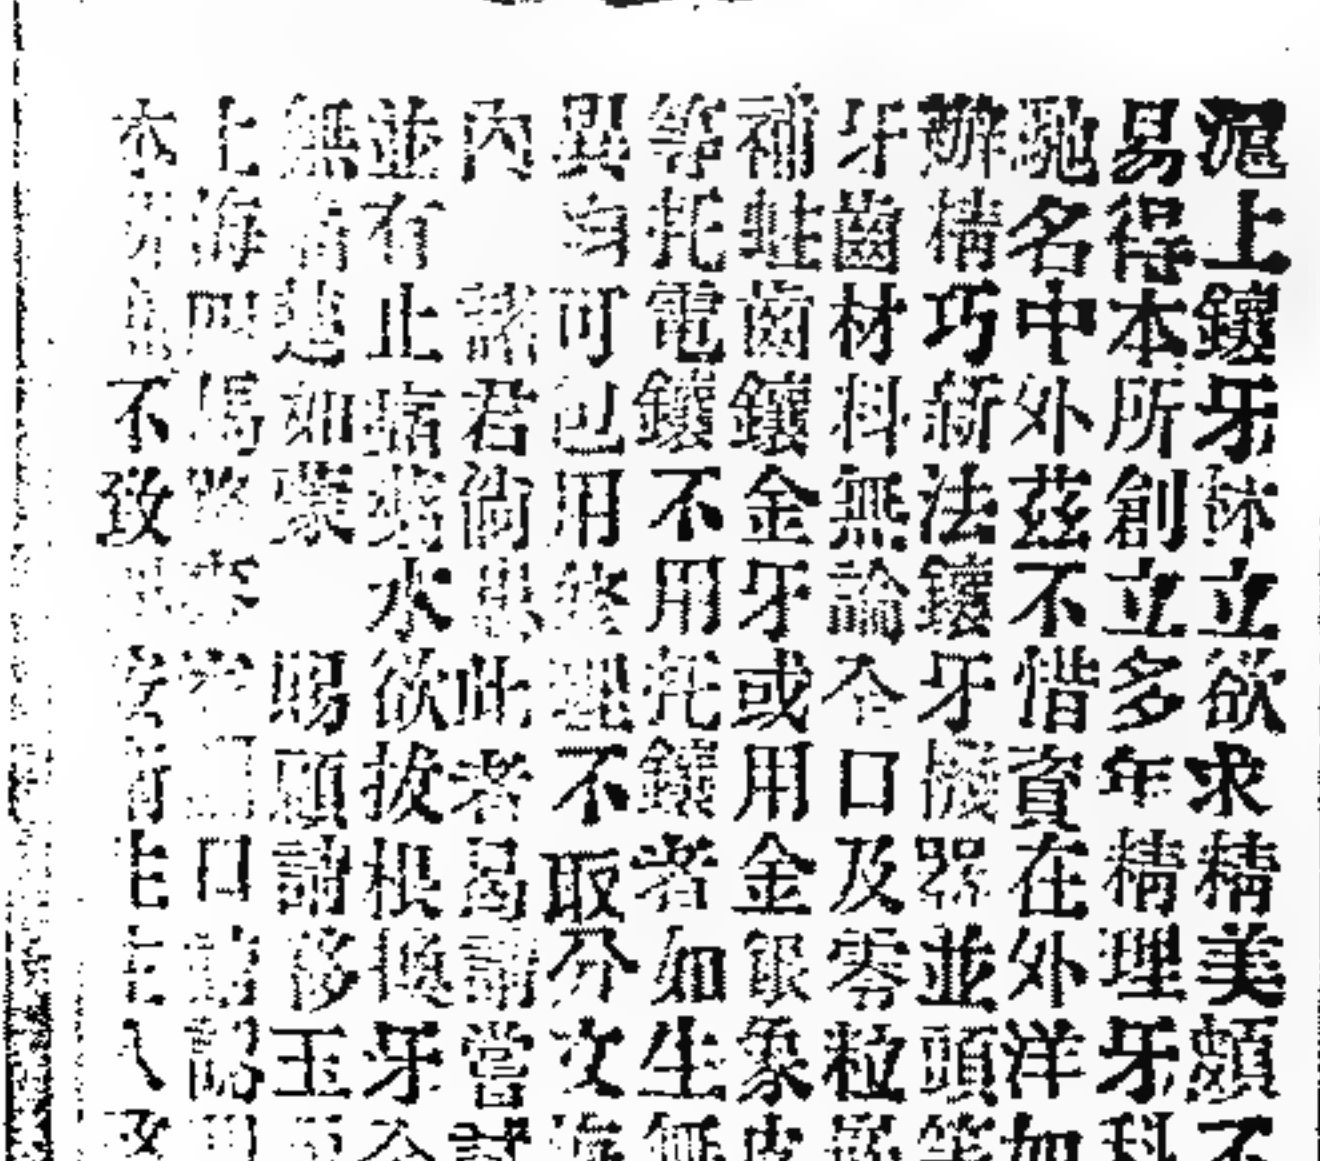 滬上鑲牙林立欲求精美頗不
易得本所創立多年精理牙科
馳名中外茲不惜資在外洋加
辦精巧新法鑲牙機器並頭等
牙齒材料無論仝口及零粒嵌
補蛀齒鑲金牙或用金銀象皮
等托電鑲不用托鑲者如生無
異自可包用終理不取分文海
內諸君倘患此者曷請嘗試
並有止痛藥水欲拔根換牙仝
無痛楚如蒙賜顧請移玉
上海四馬路口認明
本牙不致